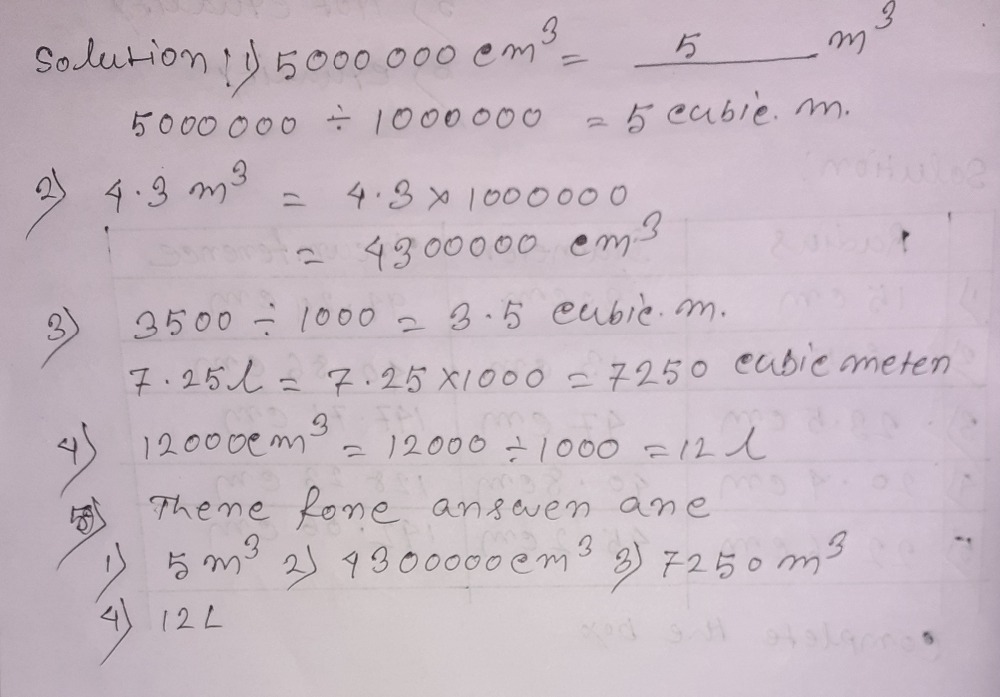 Solution : 1) 5000 000 cm³ = 5 m³
5000 000 ÷ 1000000 = 5 cubic. m.
2) 4.3 m³ = 4.3 × 1000000
= 4300000 cm³
3) 3500 ÷ 1000 = 3.5 cubic. m.
7.25l = 7.25×1000 = 7250 cubic meter
4) 12000cm³ = 12000 ÷ 1000 = 12 l
5) There fore answer are
1) 5 m³ 2) 4300000cm³ 3) 7250 m³
4) 12L